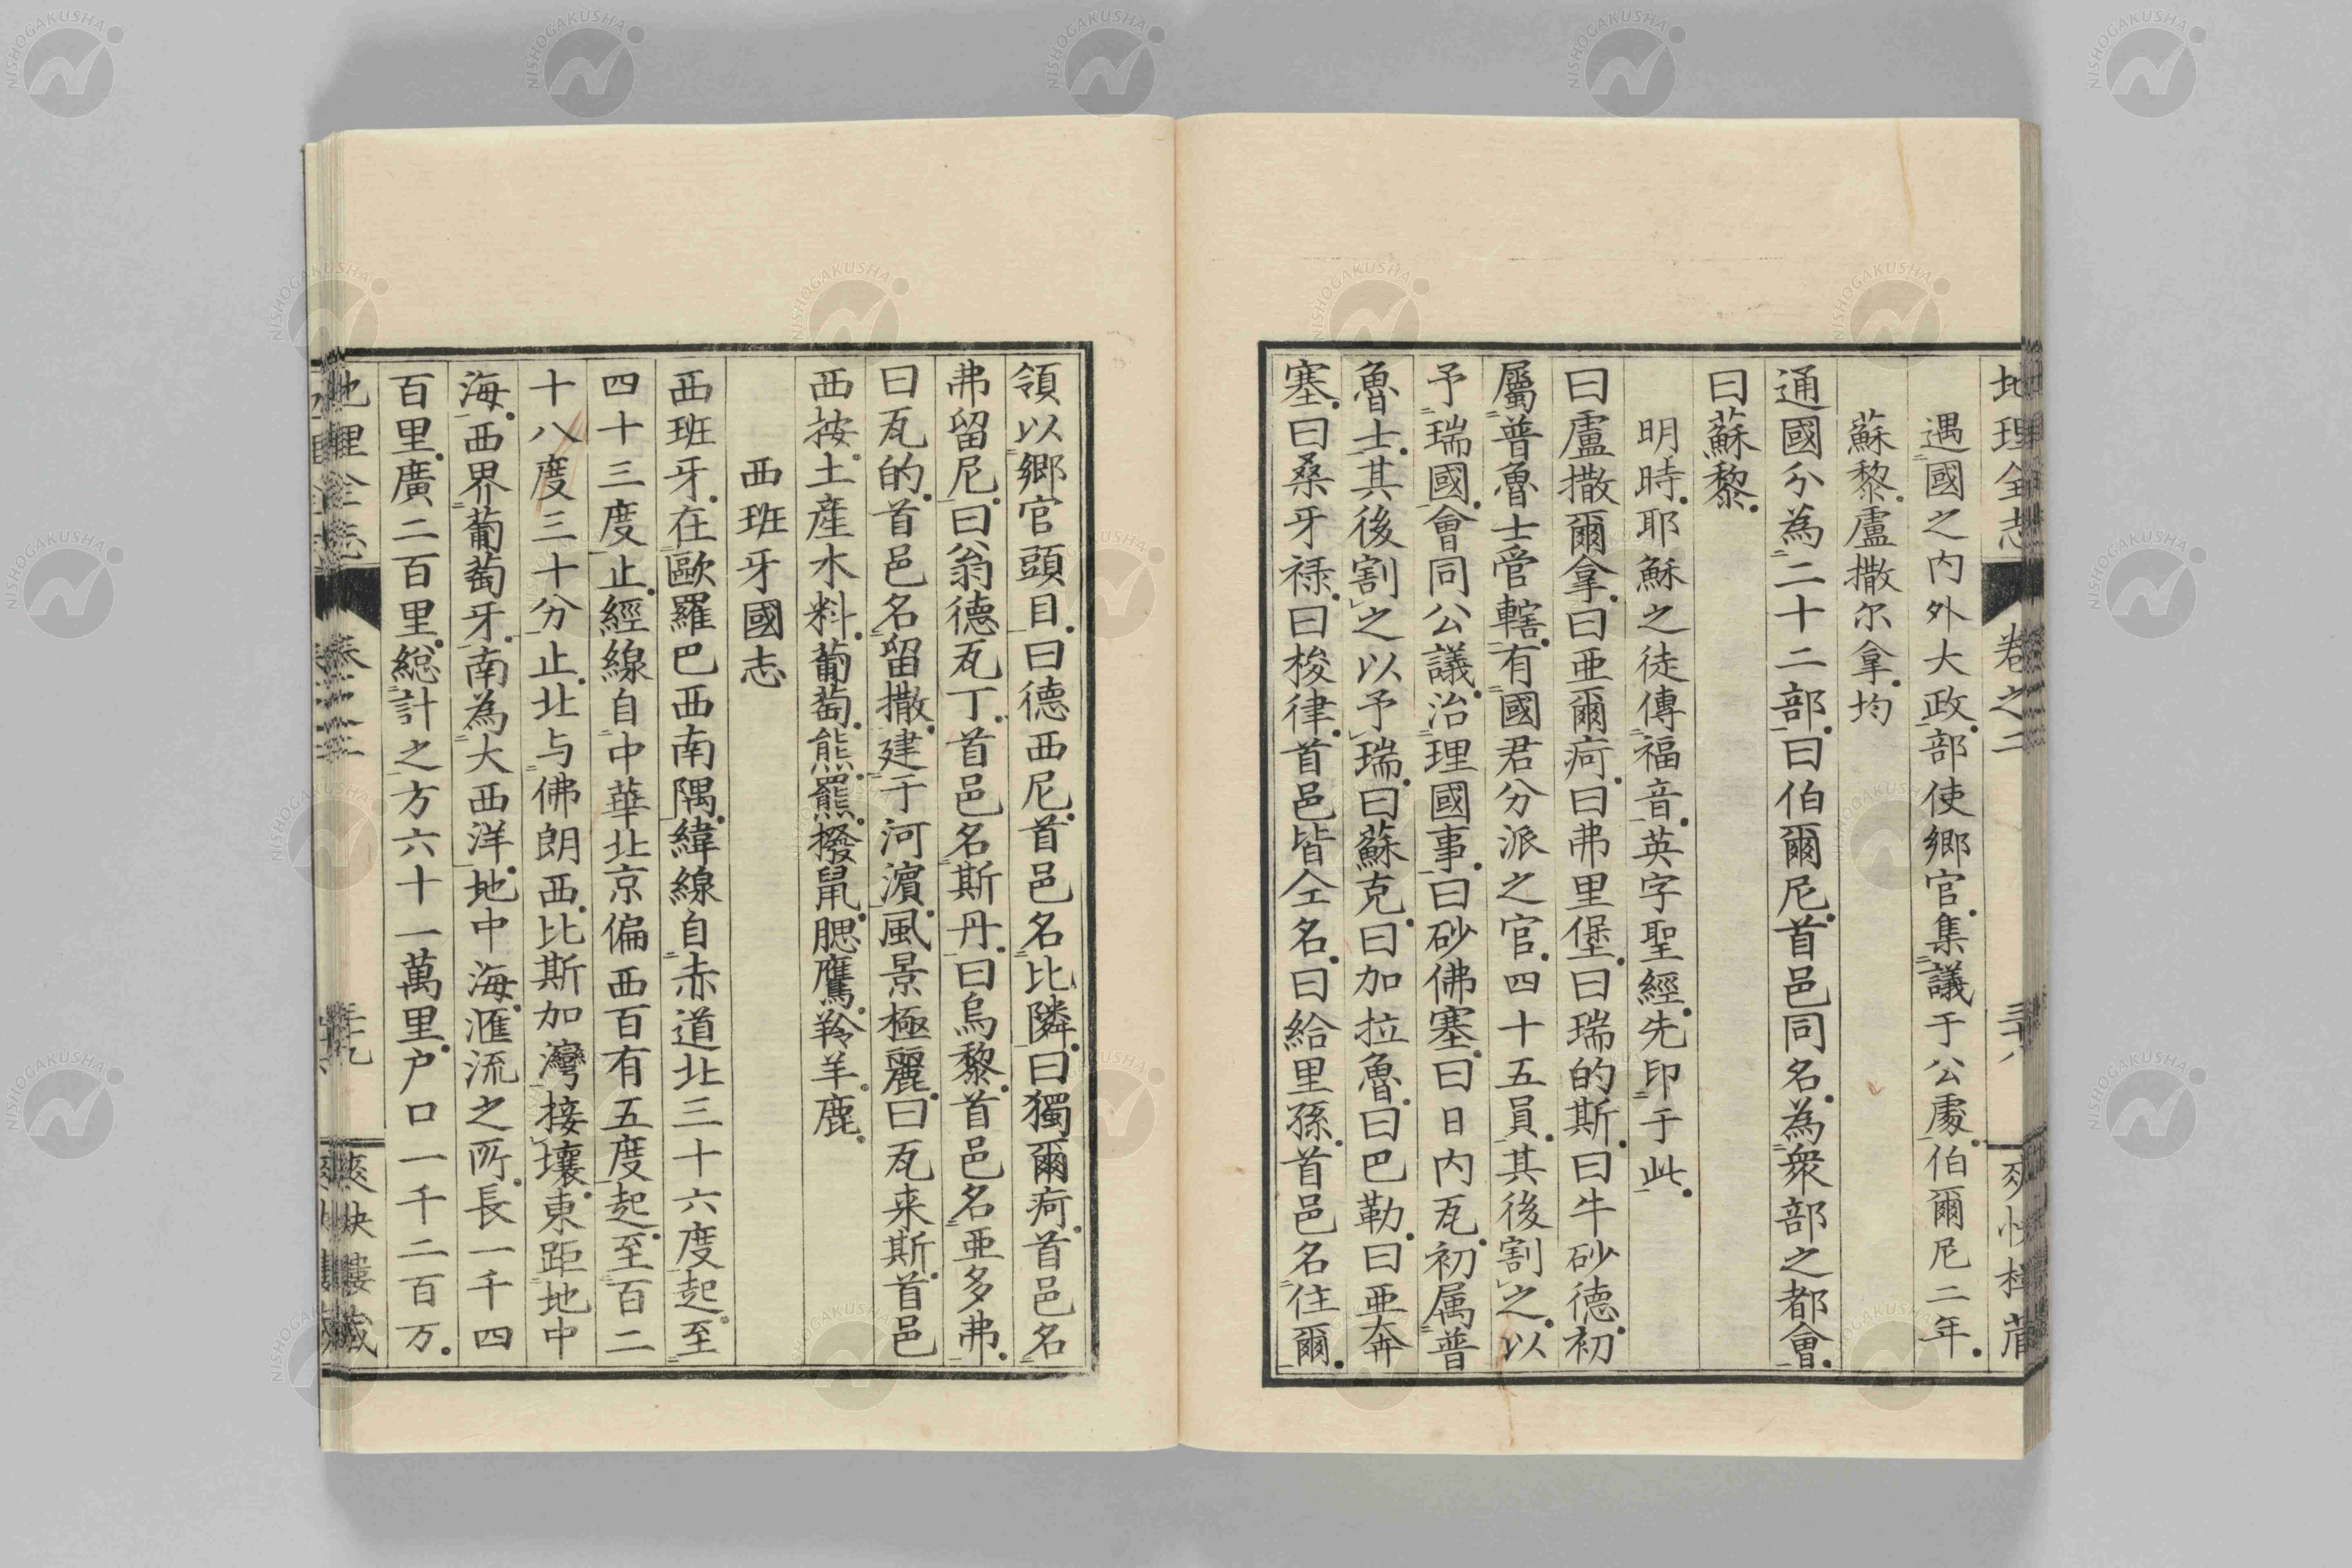 地理全志 卷之二 三十八
遇國之内外大政部使鄉官集議于公處伯爾尼二年
蘇黎盧撒尔拿均
通國分為二十二部曰伯爾尼首邑同名為衆部之都會
曰蘇黎
明時耶穌之徒傳福音英字聖經先印于此
曰盧撒爾拿曰亜爾疴曰弗里堡曰瑞的斯曰牛砂德初
屬普魯士管轄有國君分派之官四十五員其後割之以
予瑞國會同公議治理國事曰砂佛塞曰日内瓦初属普
魯士其後割之以予瑞曰蘇克曰加拉魯曰巴勒曰亜奔
塞曰桑牙祿曰梭律首邑皆仝名曰給里孫首邑名住爾
領以鄉官頭目曰德西尼首邑名比隣曰獨爾疴首邑名
弗留尼曰翁德瓦丁首邑名斯丹曰烏黎首邑名亜多弗
曰瓦的首邑名留撒建于河濵風景極麗曰瓦来斯首邑
西按土産水料葡萄熊羆撥鼠腮鷹羚羊鹿
西班牙國志
西班牙在歐羅巴西南隅緯線自赤道北三十六度起至
四十三度止經線自中華北京偏西百有五度起至百二
十八度三十分止北与佛朗西比斯加灣接壤東距地中
海西界葡萄牙南為大西洋地中海滙流之所長一千四
百里廣二百里總計之方六十一萬里户口一千二百万
地理全志
NISHOGAKUSHA